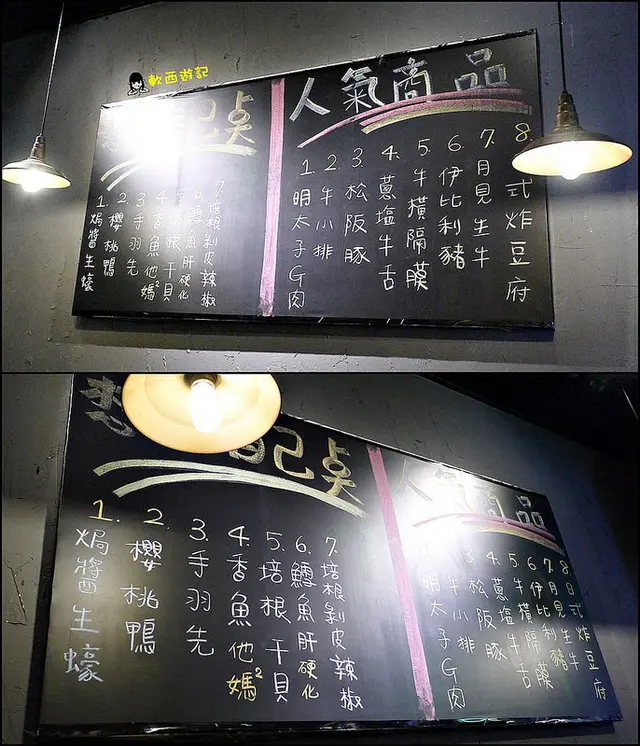 軟西遊記
自己点
1.焗醬生蠔
2.櫻桃鴨
3.手羽先
4.香魚他媽²
5.培根干貝
6.鱈魚肝硬化
7.培根剝皮辣椒
人氣商品
1.明太子G肉
2.牛小排
3.松阪豚
4.蔥塩牛舌
5.牛橫隔膜
6.伊比利豬
7.月見生牛
8.式炸豆府
自己点
1.焗醬生蠔
2.櫻桃鴨
3.手羽先
4.香魚他媽²
5.培根干貝
6.鱈魚肝硬化
7.培根剝皮辣椒
人氣商品
明太子G肉
牛小排
3松阪豚
4蔥塩牛舌
5牛橫隔膜
6伊比利豬
7月見生牛
8日式炸豆府